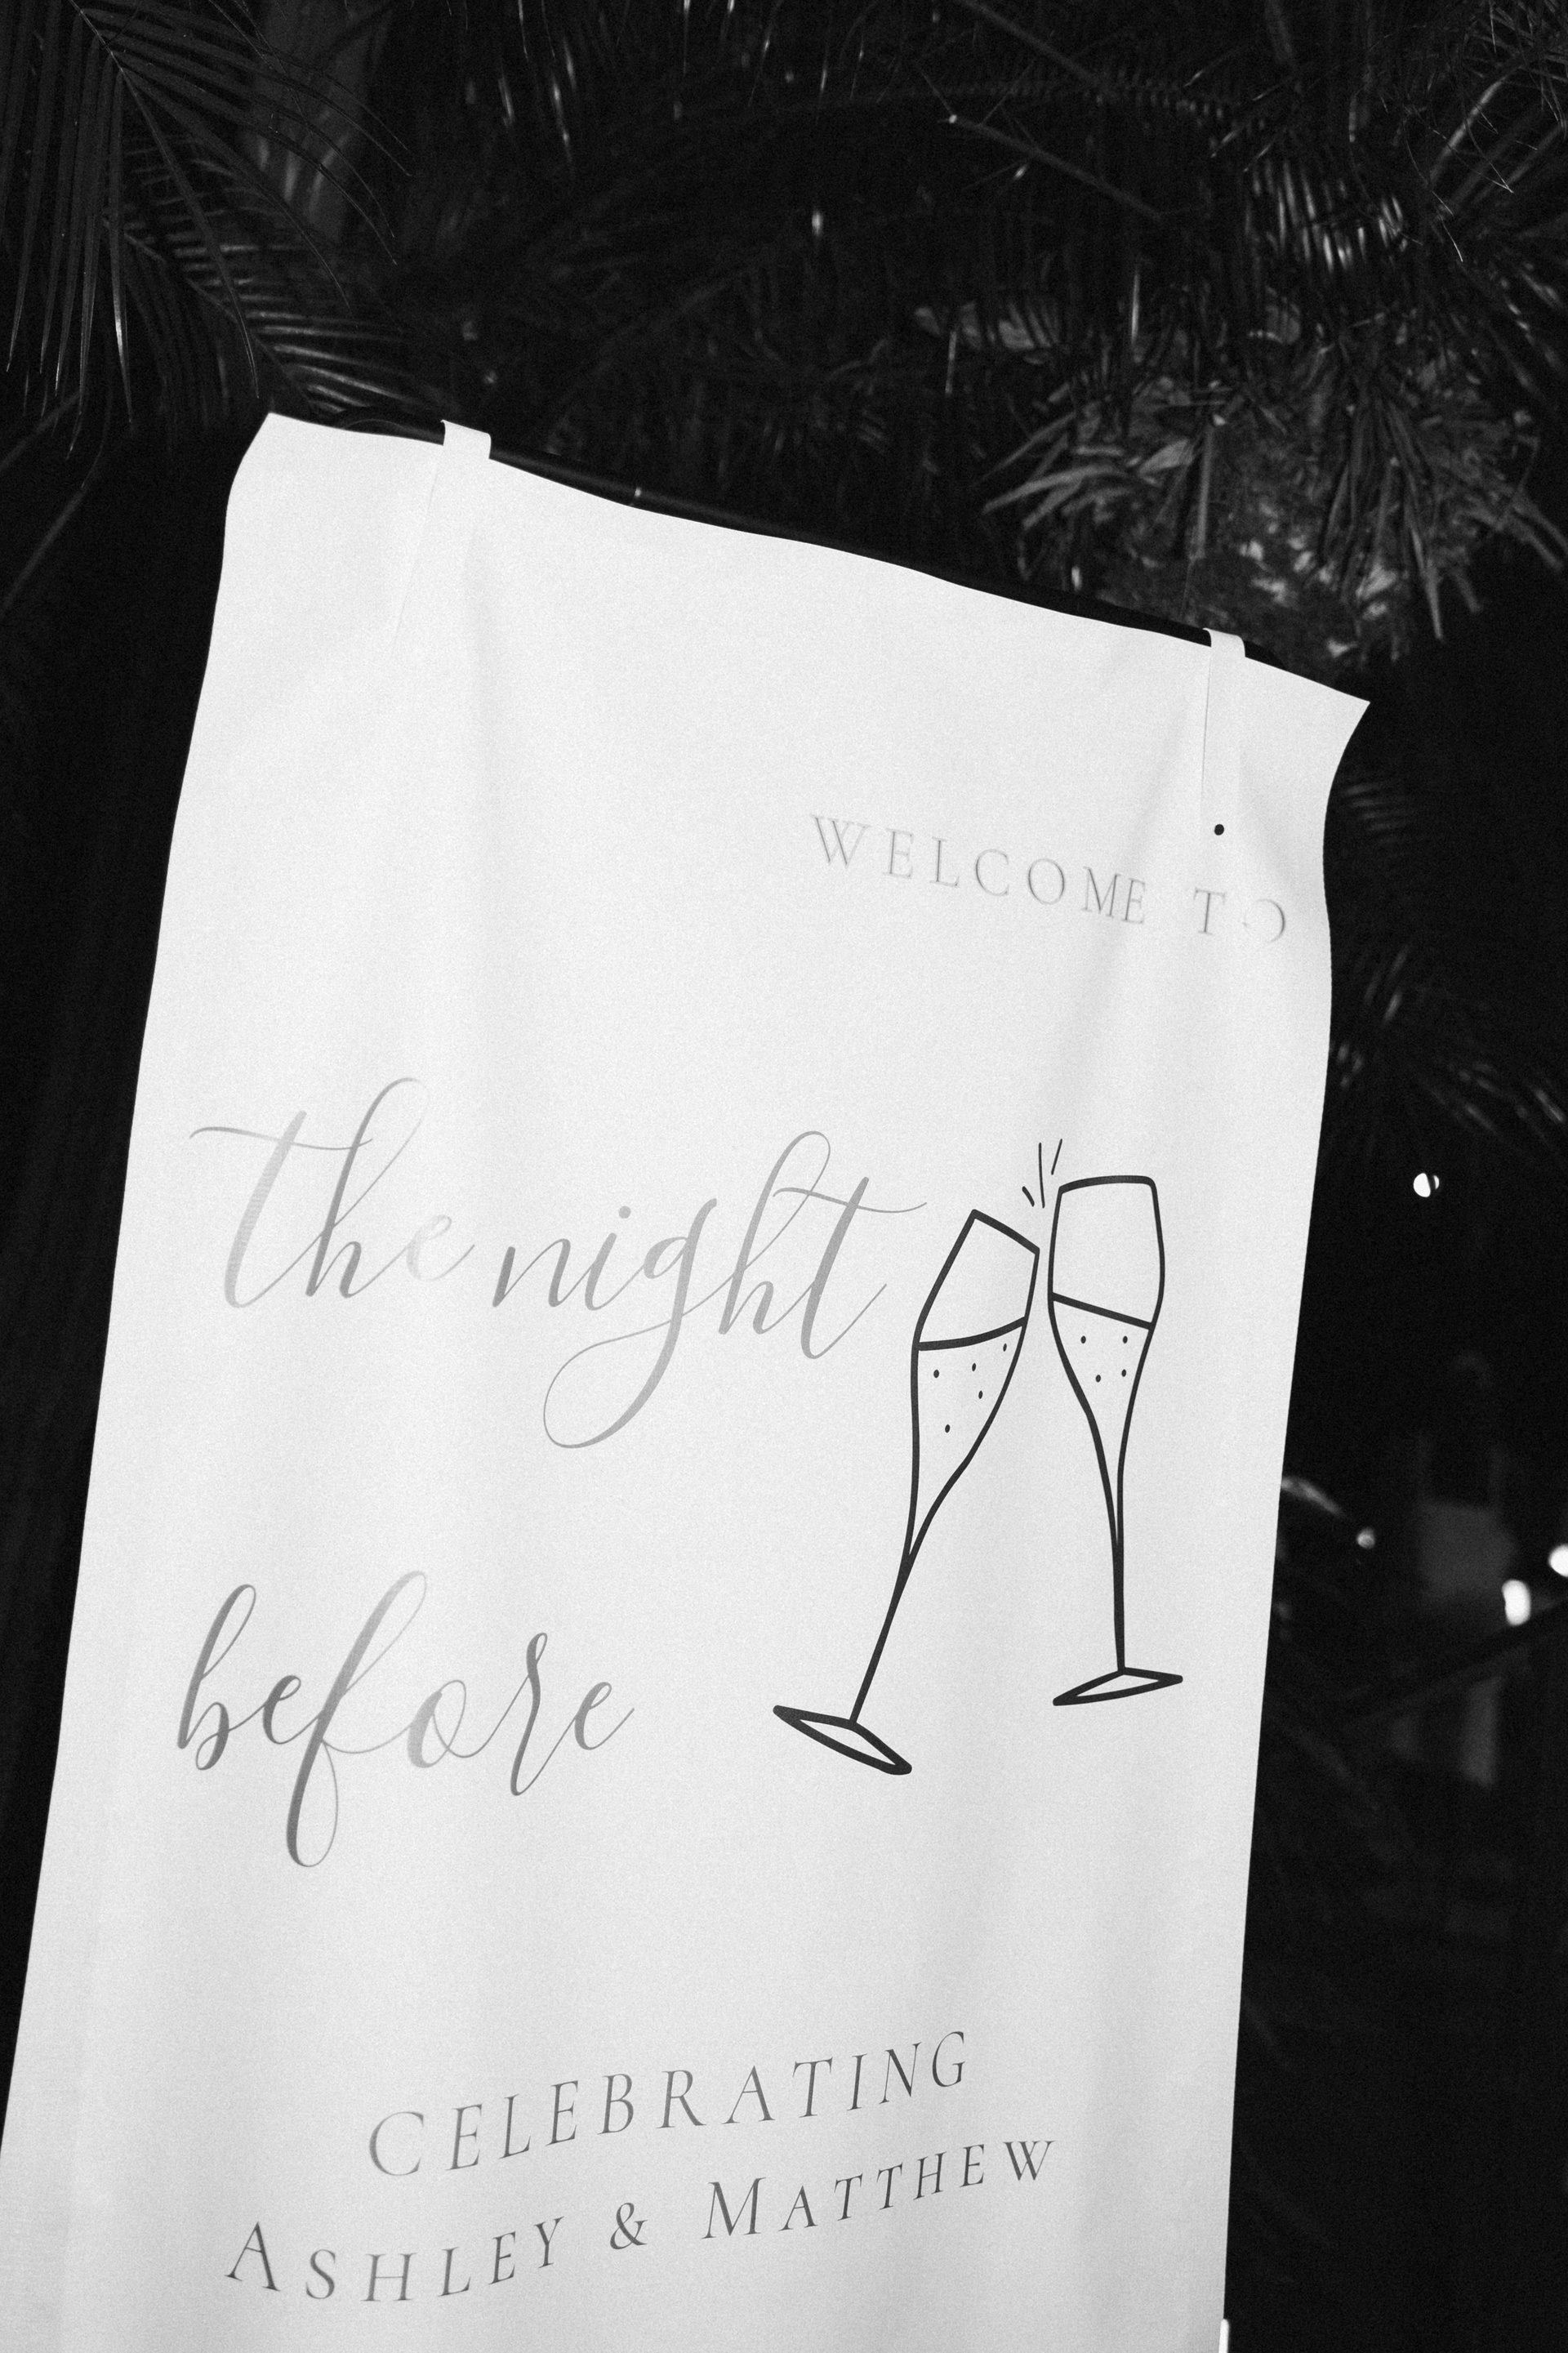 WELCOME TO
the night
before
CELEBRATING
ASHLEY & MATTHEW